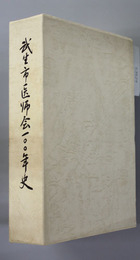 武生市医师会一〇〇年史